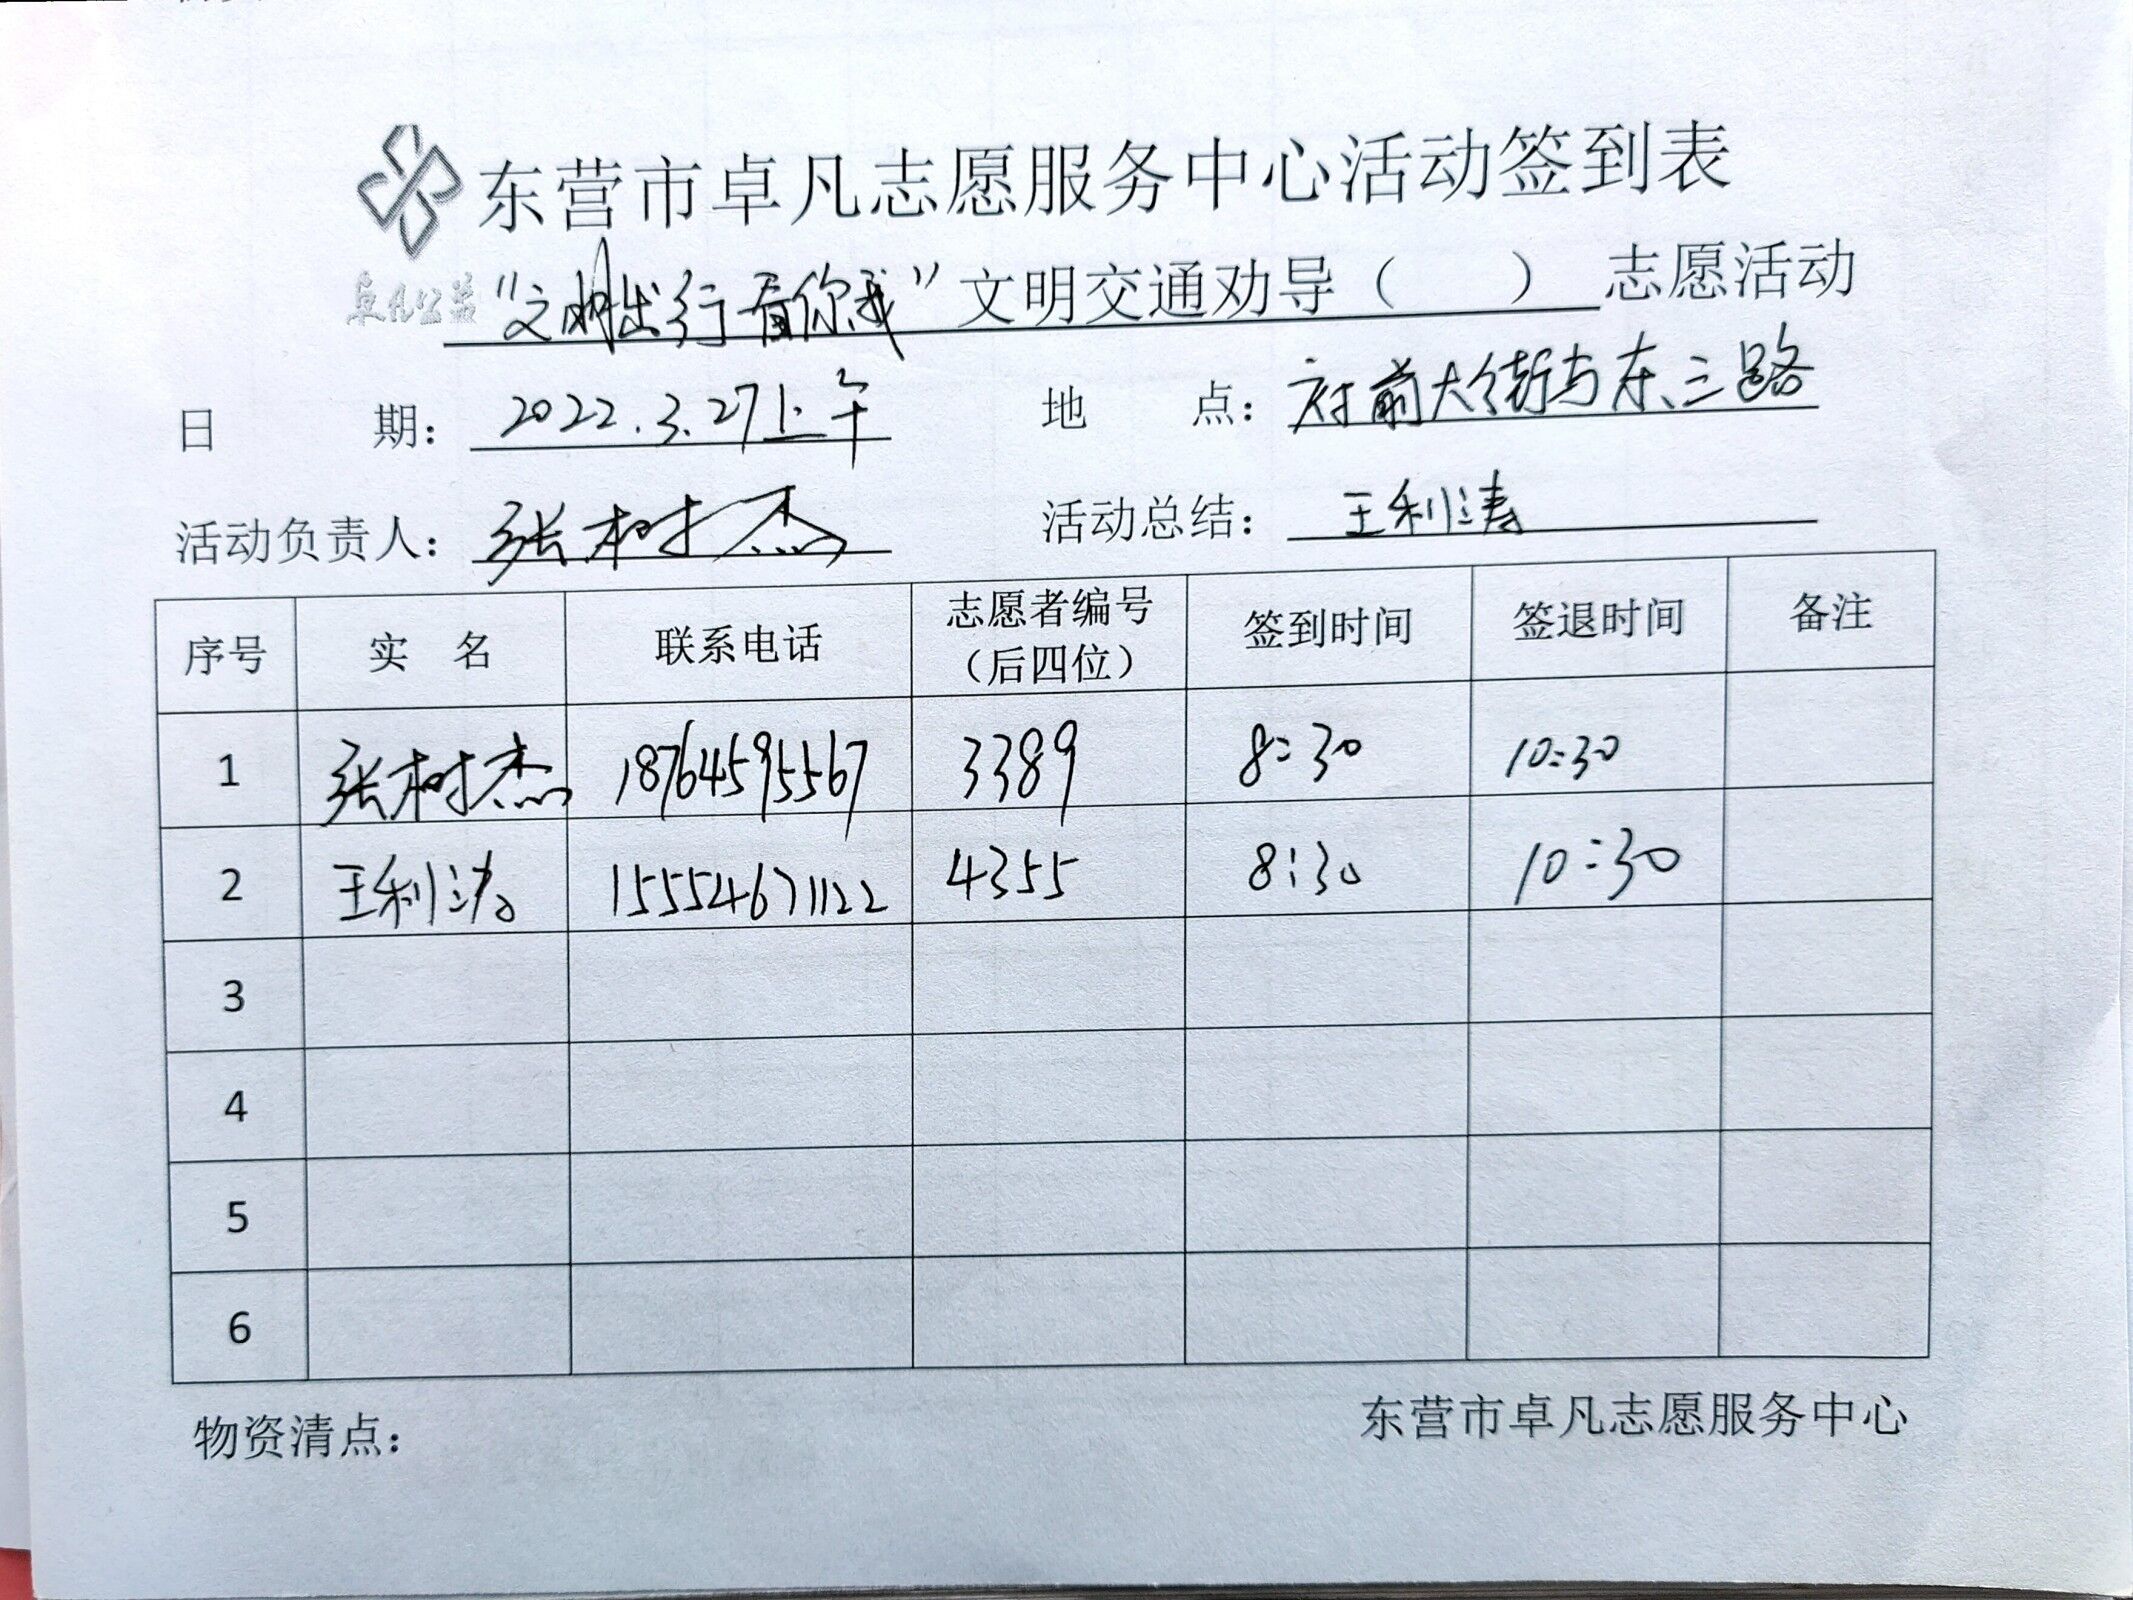 东营市卓凡志愿服务中心活动签到表
卓凡公益 “文明出行看你我” 文明交通劝导（ ） 志愿活动
日 期： 2022.3.27上午 地 点： 府前大街与东三路
活动负责人： 张树杰 活动总结： 王利涛
序号 实 名 联系电话 志愿者编号（后四位） 签到时间 签退时间 备注
1 张树杰 18764595567 3389 8:30 10:30
2 王利涛 15554671122 4355 8:30 10:30
3
4
5
6
物资清点： 东营市卓凡志愿服务中心